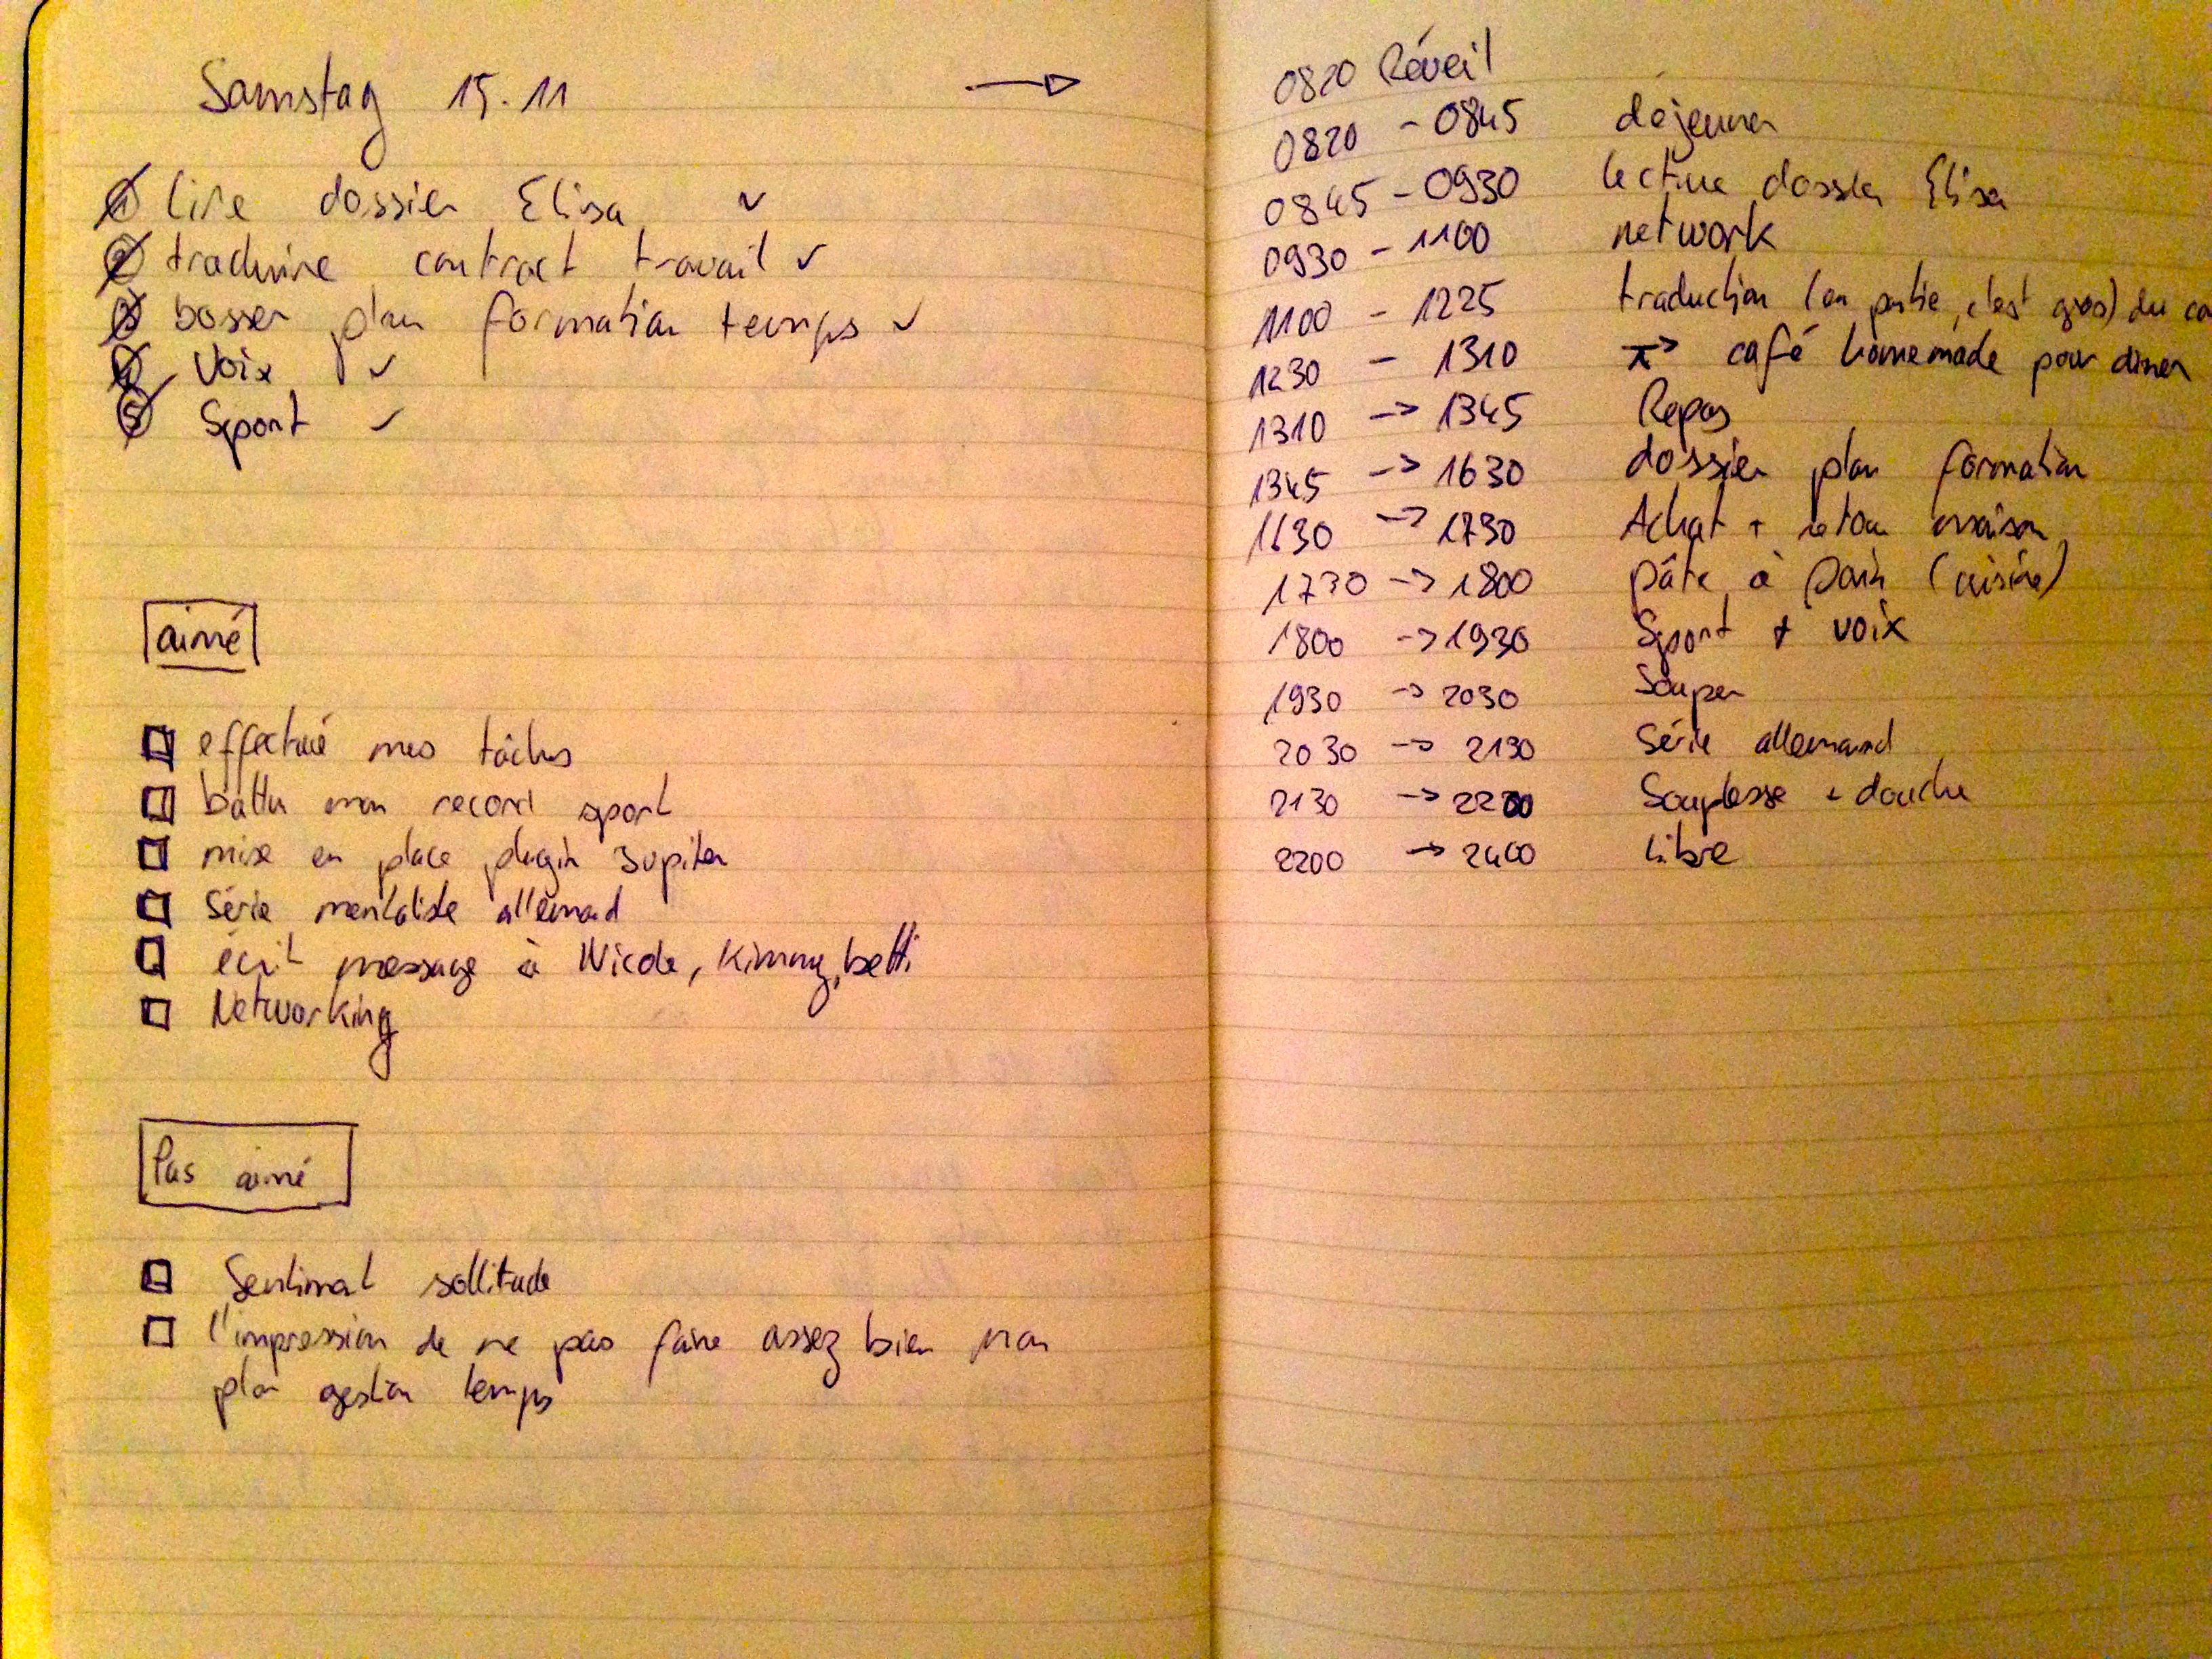 Samstag 15.11 →
1 lire dossier Elisa ✓
2 traduire contract travail ✓
3 bosser plan formation temps ✓
4 Voix ✓
5 Sport ✓
aimé
effectué mes tâches
battu mon record sport
mise en place plugin Jupiter
Série mentaliste allemand
écrit message à Nicole, Kimmy, betti
Networking
Pas aimé
Sentiment sollitude
l'impression de ne pas faire assez bien mon
plan gestion temps
0820 Réveil
0820 - 0845 déjeuner
0845 - 0930 lecture dossier Elisa
0930 - 1100 network
1100 - 1225 traduction (en partie, c'est gros) du
1230 - 1310 café homemade pour diner
1310 -> 1345 Repos
1345 -> 1630 dossier plan formation
1630 -> 1730 Achat + retour maison
1730 -> 1800 pâte à pain (cuisine)
1800 -> 1930 Sport + voix
1930 -> 2030 Souper
2030 -> 2130 Série allemand
2130 -> 2200 Souplesse + douche
2200 -> 2400 Libre